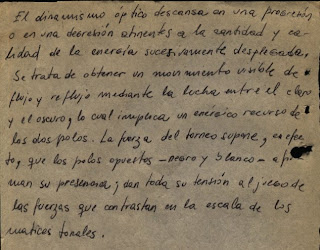 El dinamismo óptico descansa en una progresión
o en una degresión atinentes a la cantidad y ca-
lidad de la energía sucesivamente desplegada.
Se trata de obtener un movimiento visible de
flujo y reflujo mediante la lucha entre el claro
y el oscuro, lo cual implica un enérgico recurso de
los dos polos. La fuerza del torneo supone, en efec-
to, que los polos opuestos —negro y blanco— afir-
man su presencia; dan toda su tensión al juego de
las fuerzas que contrastan en la escala de los
maticas tonales.